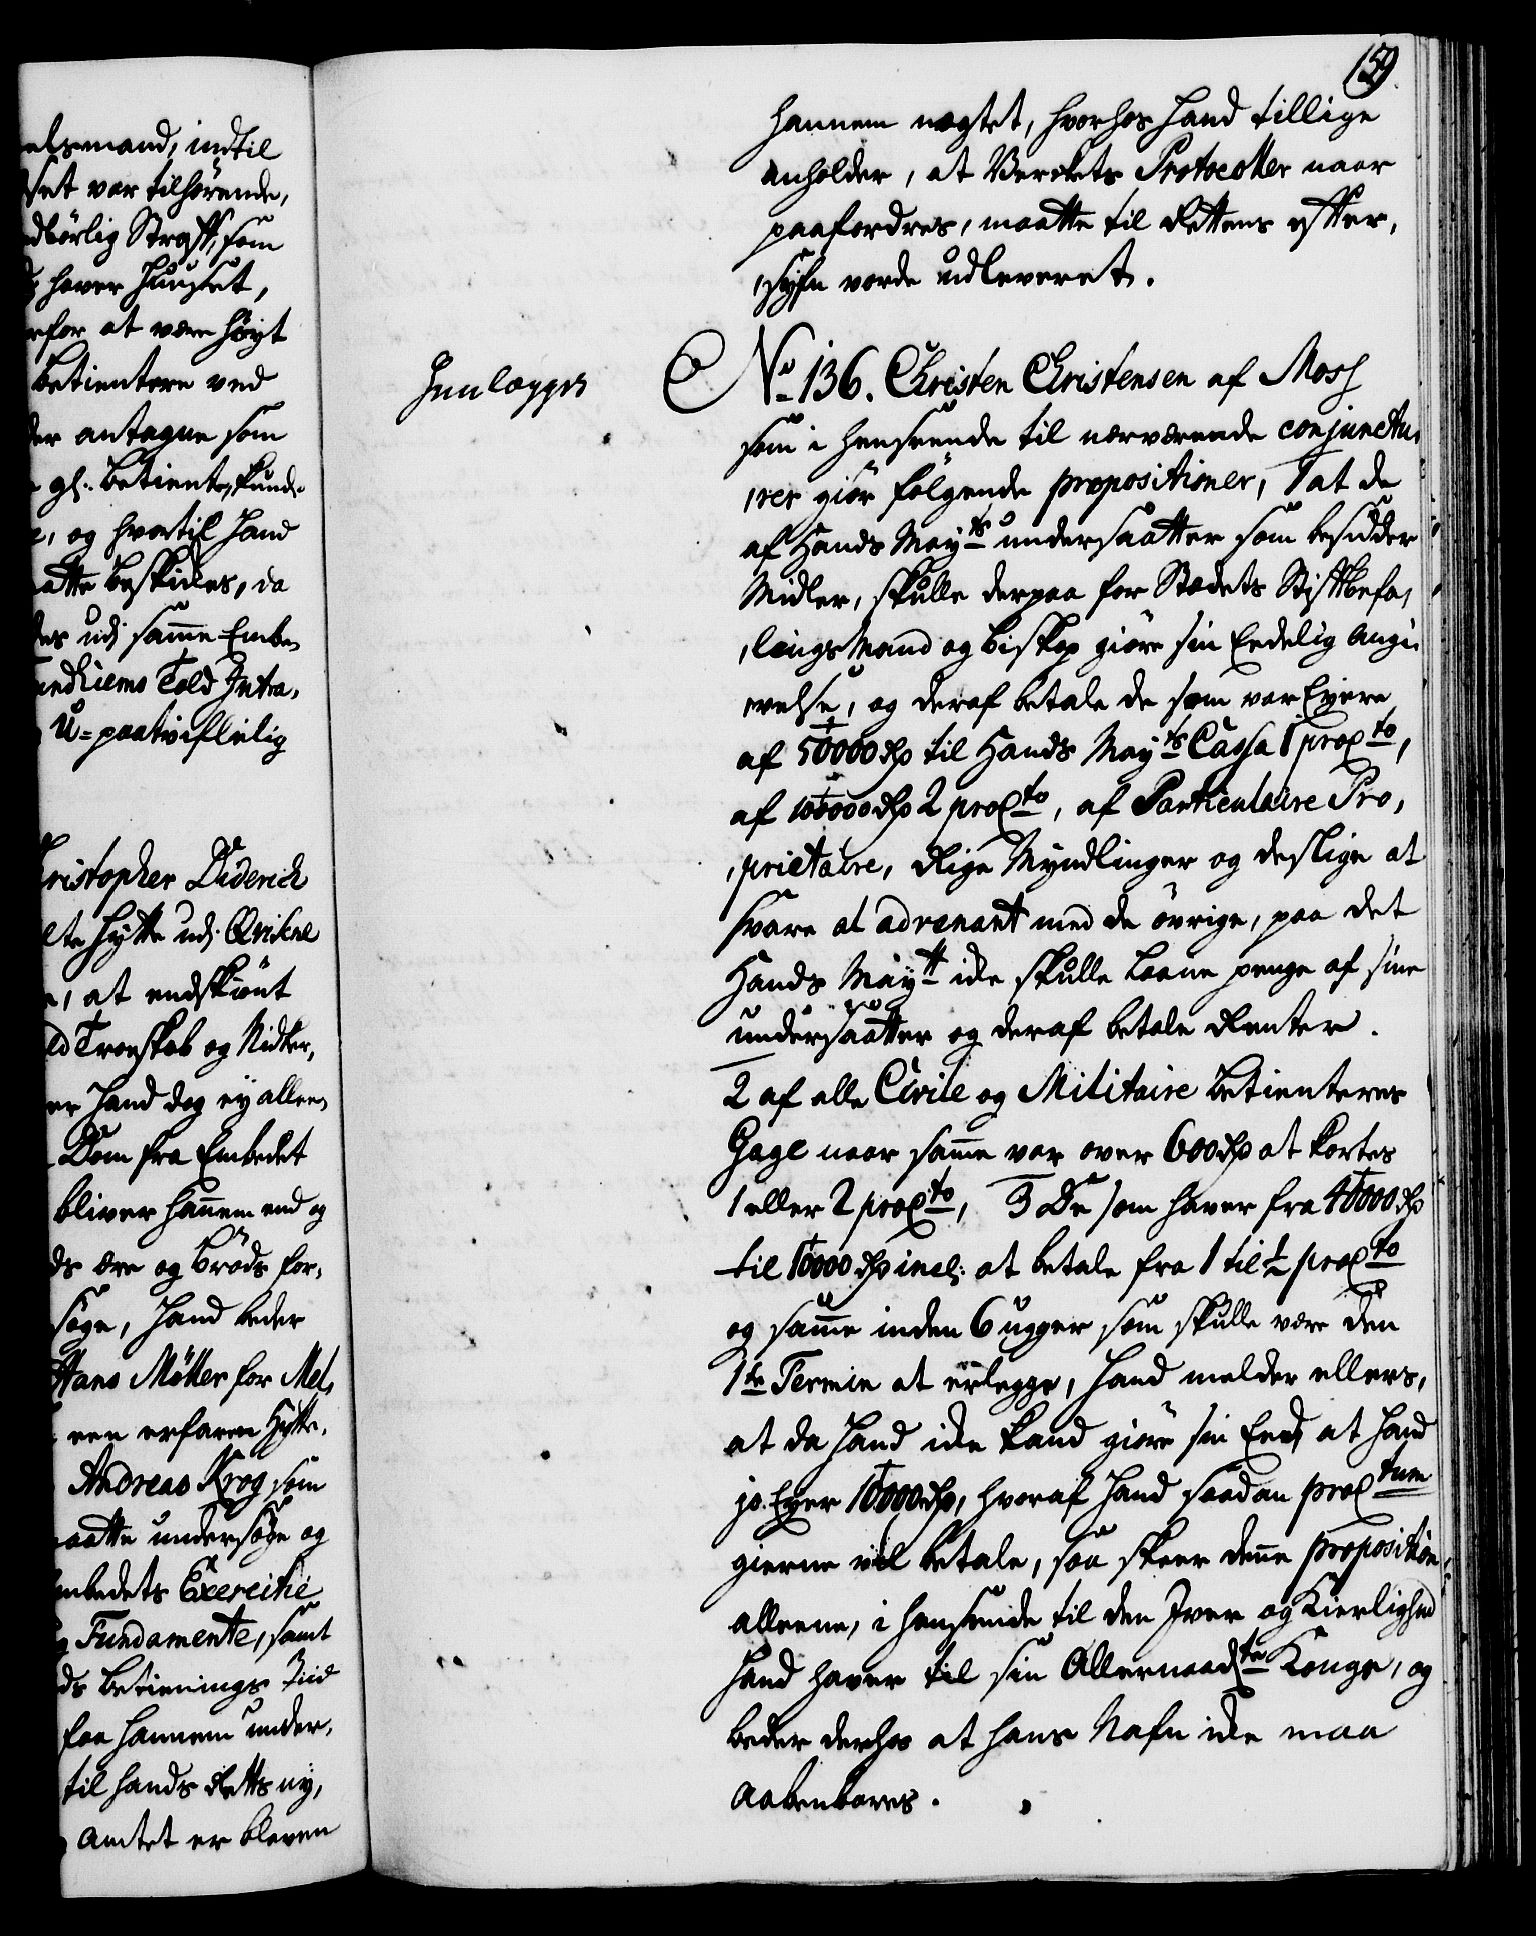 elsmand, indtil
set var tilhörende,
dbörlig Straff, som
haver huuset,
rfor at være høyt
betientere ved
der antagne som
gl. betiente, kunde
e, og hvortil hand
atte beskickes, da
des udj samme Embe,
undhiems Told Intra,
U-paatviflelig
hristopher Diderich
lte Hytte udj Qvikne
e, at endskiønt
ld Troeskab og Nidker,
er hand dog ey alleen,
Dom fra Embedet
bliver hannem end og
ds ære og brøds for,
søge, hand beder
Hans Möller for Mel,
een erfaren Hytte,
Andreas Krog som
aatte undersøge og
mbedets Exercitie
og Fundamente, samt
ds betienings Tiid
faa hannem under,
til hands Rettes ny,
Amtet er bleven
159.
hannem nægtet, hvorhos hand tillige
anholder, at Verckets Protocoller naar
paafordres, maatte til Rettens efter,
,syfn vorde udleveret.
Henlægges
No 136. Christen Christensen af Moss
som i henseende til nærværende conjunctu,
,rer giør følgende propositioner, 1 at de
af Hands Mayts undersaatter som besidder
Midler, skulle derpaa for Stædets Stiftbefa,
,lings Mand og biskop giøre sin Eedelig Angi,
,velse, og deraf betale de som var Eyere
af 50000 Rd til Hands Mayts Cassa 1 proCto,
af 100000 Rd 2 proCto, af Particulaire Pro,
,prietaire, Rige Myndlinger og deslige at
svare al advenant med de øvrige, paa det
Hands Maytt icke skulle laane penge af sine
undersaatter og deraf betale Renter.
2 af alle Civile og Militaire betienteres
Gage naar samme var over 600 Rd at kortes
1 eller 2 proCto, 3 De som haver fra 40000 Rd
til 10000 Rd incl: at betale fra 1 til ½ proCto
og samme inden 6 ugger som skulle være den
1te Termin at erlegge, hand melder ellers,
at da hand icke kand giøre sin Eed at hand
jo Eyer 10000 Rd, hvoraf hand saadan proCtum
gierne vil betale, saa skeer denne proposition
alleene, i henseende til den Iver og Kierlighed
hand haver til sin Allernaadte Konge, og
beder derhos at hans Nafn icke maa
aabenbares.